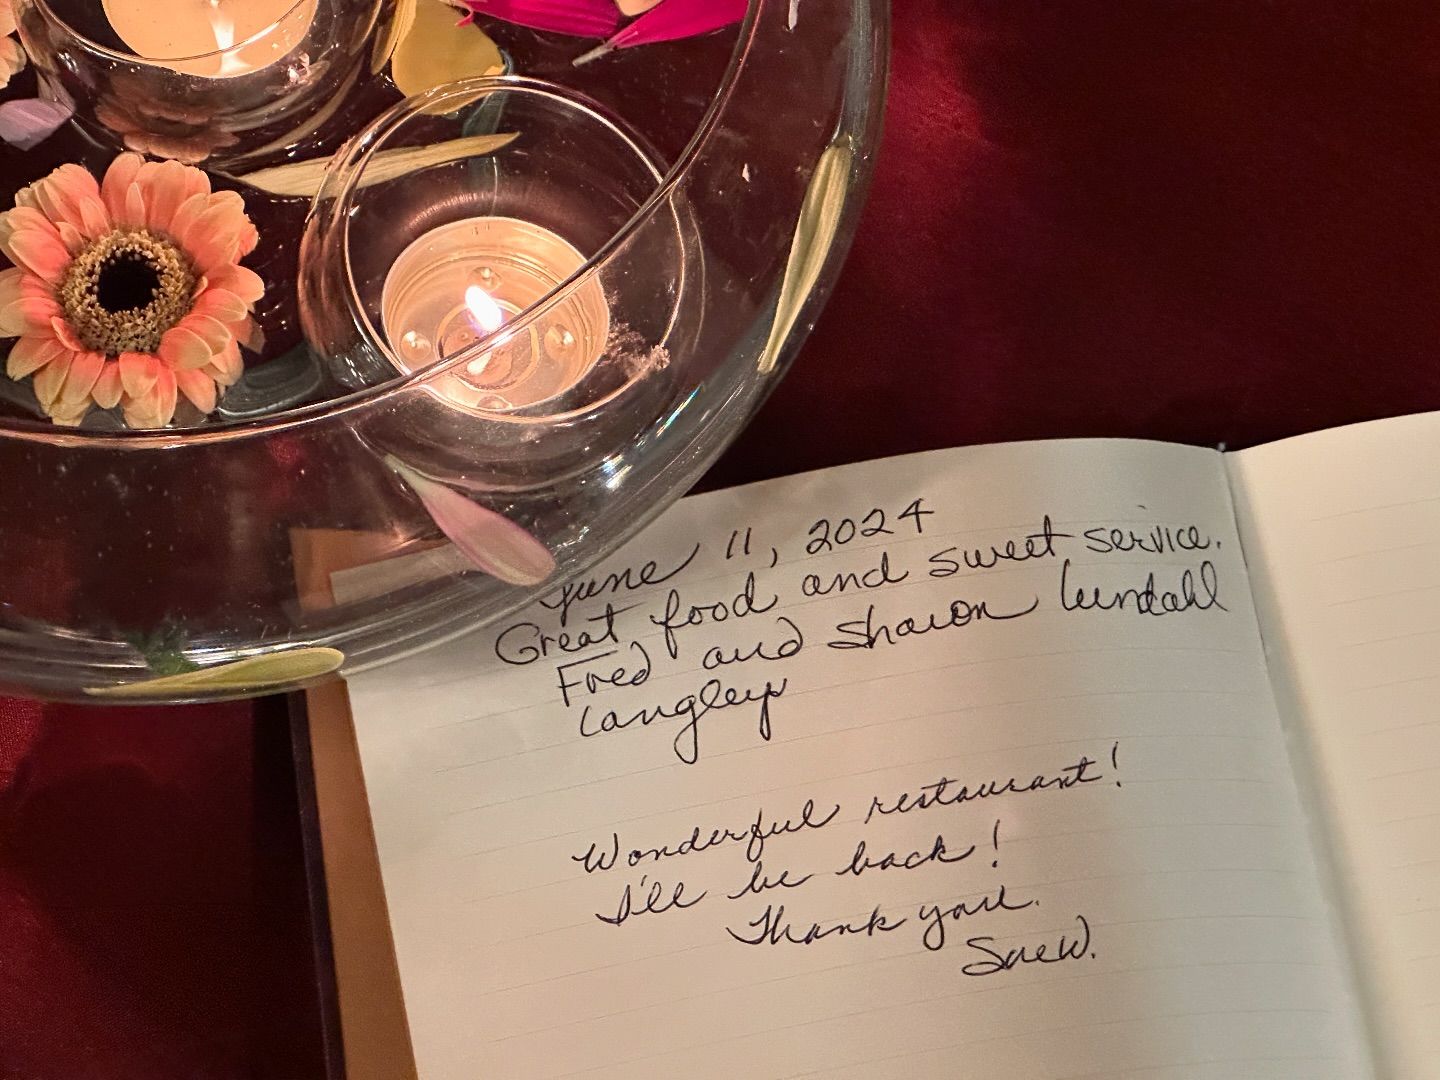 June 11, 2024
Great food and sweet service.
Fred and Sharon Lundahl
Langley
Wonderful restaurant!
I'll be back!
Thank you.
Sue W.